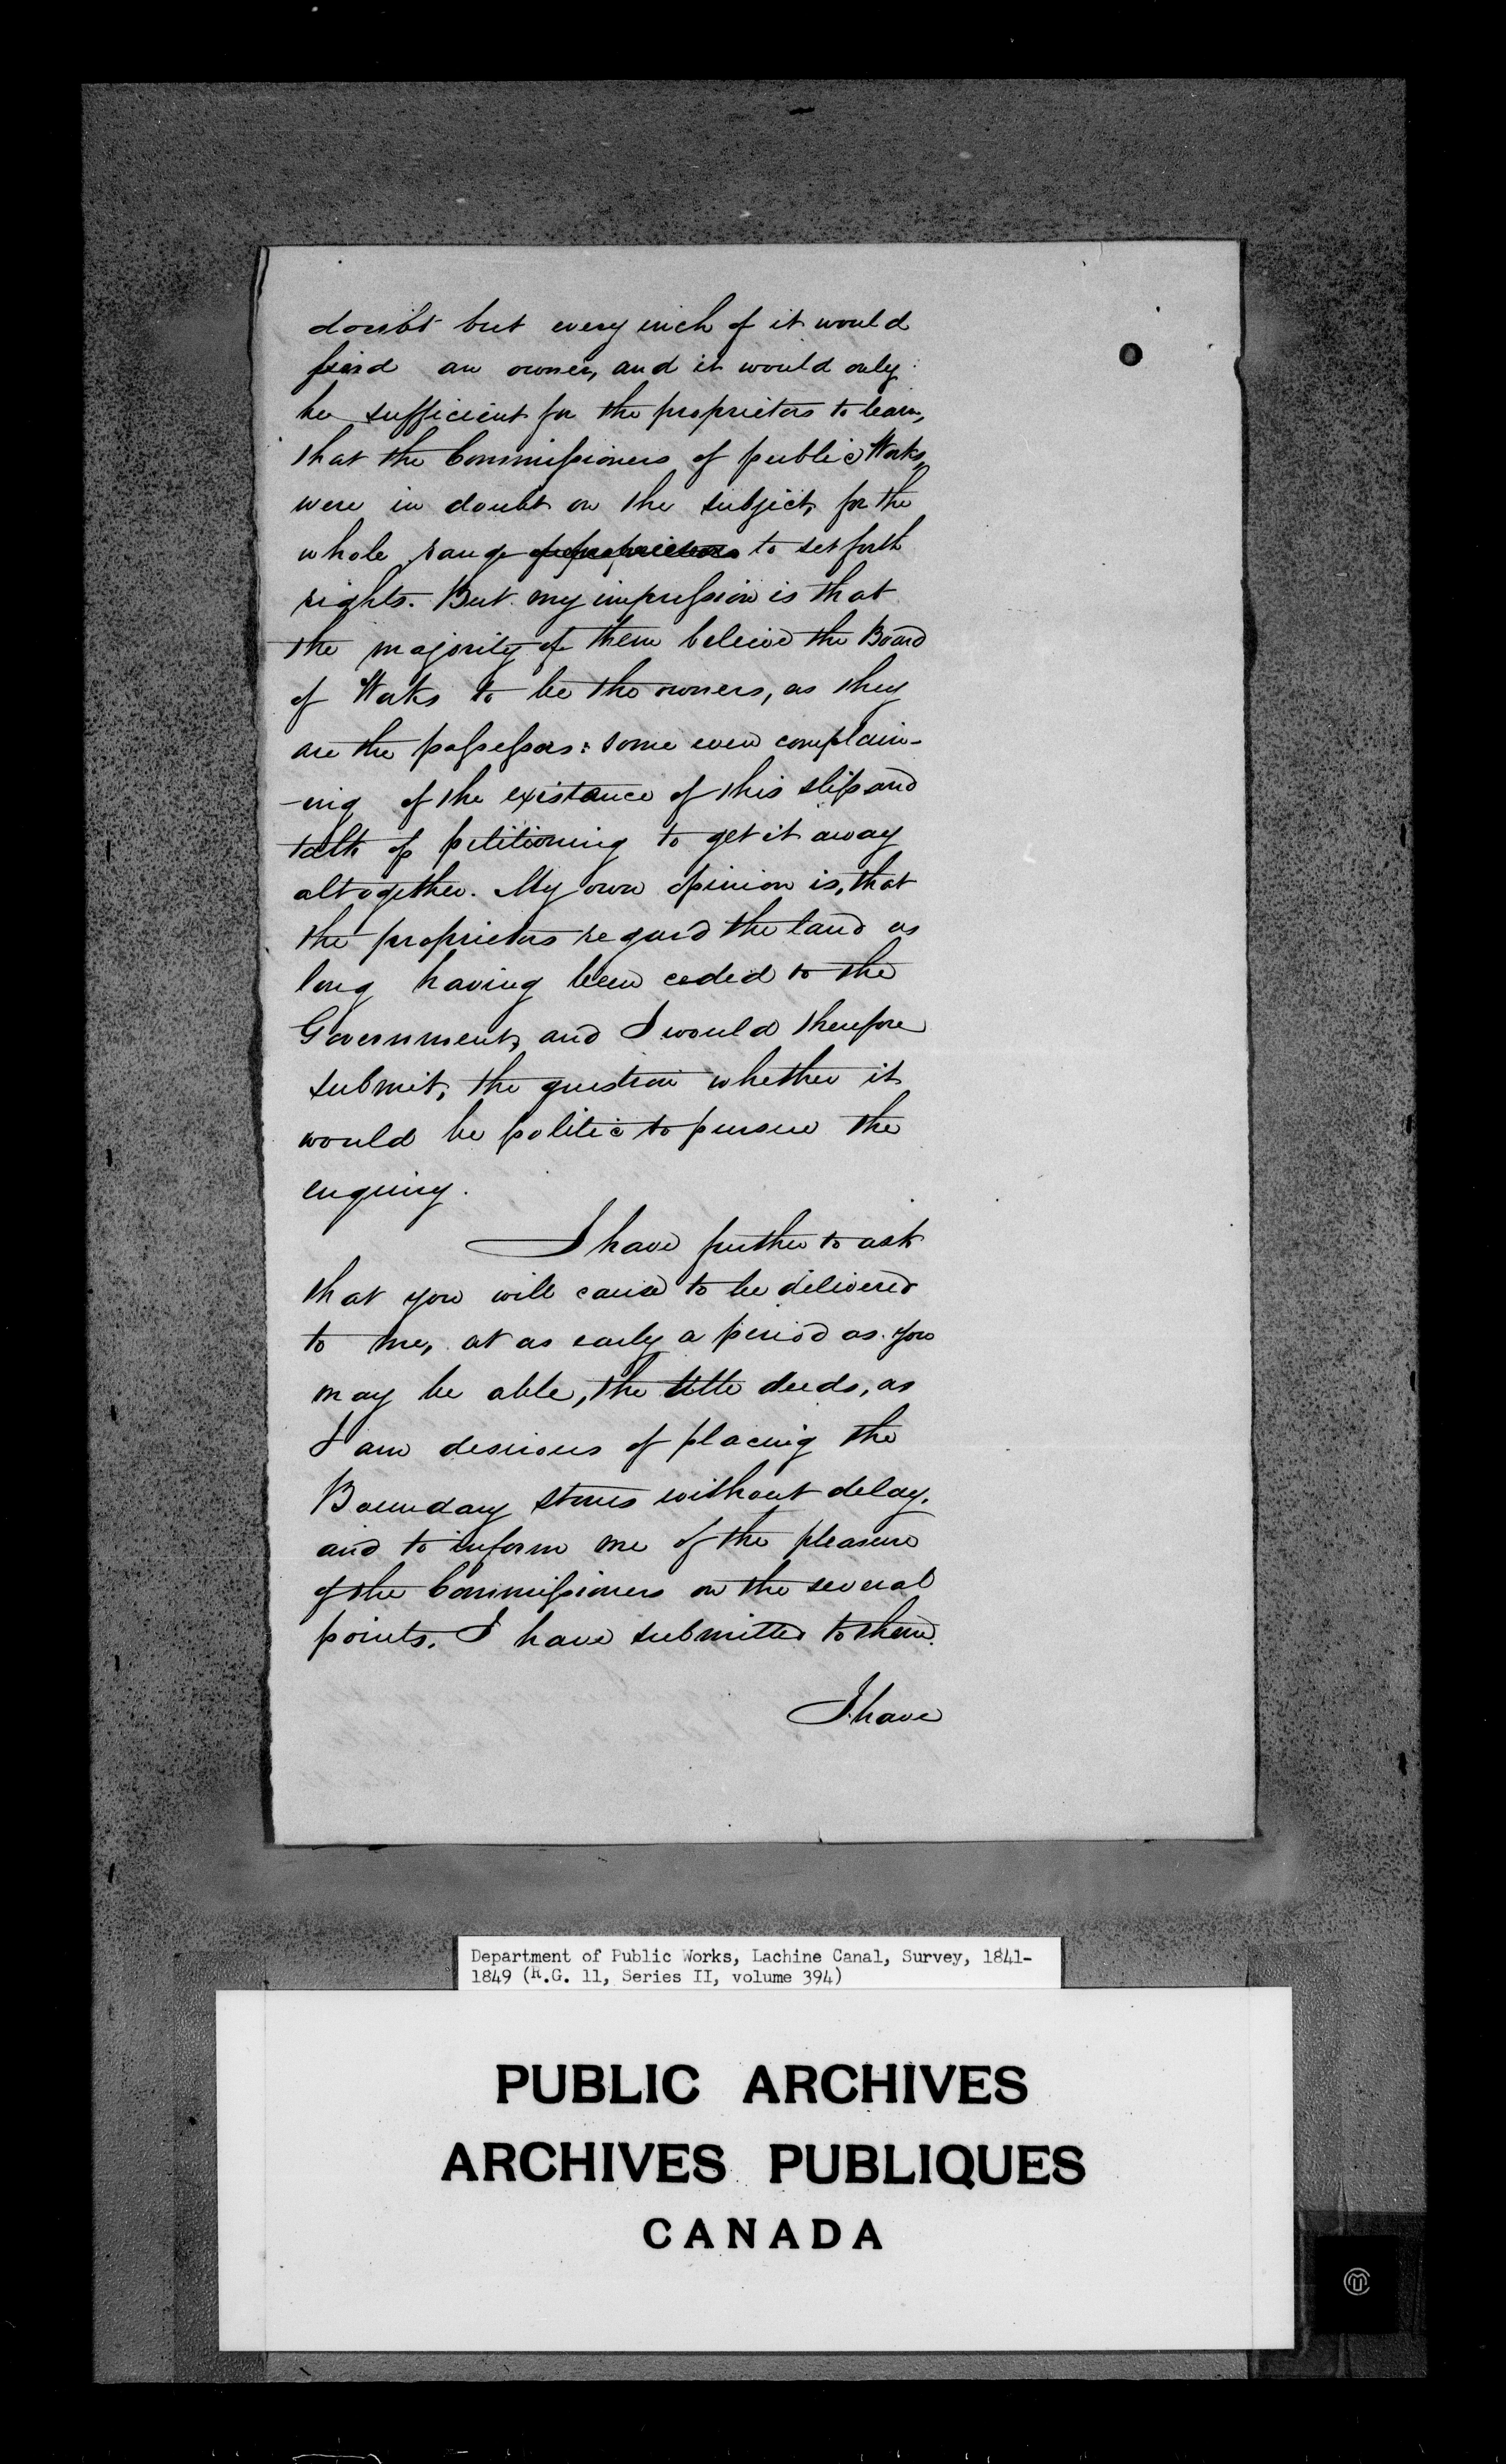 doubt but every inch of it would
find an owner, and it would only
be sufficient for the proprietors to learn,
that the Commissioners of public Works,
were in doubt on the subject, for the
whole range of proprietors to set forth
rights. But my impression is that
the majority of them beleive the Board
of Works to be the owners, as they
are the possessors: some even complain-
-ing of the existance of this slip and
talk of petitioning to get it away
altogether. My own opinion is, that
the proprietors regard the land as
long having been ceded to the
Government, and I would therefore
submit, the question whether it
would be politic to pursue the
enquiry.
I have further to ask
that you will cause to be delivered
to me, at as early a period as you
may be able, the title deeds, as
I am desirous of placing the
Boundary stones without delay,
and to inform me of the pleasure
of the Commissioners on the several
points. I have submitted to them.
I have
Department of Public Works, Lachine Canal, Survey, 1841-
1849 (R.G. 11, Series II, volume 394)
PUBLIC ARCHIVES
ARCHIVES PUBLIQUES
CANADA